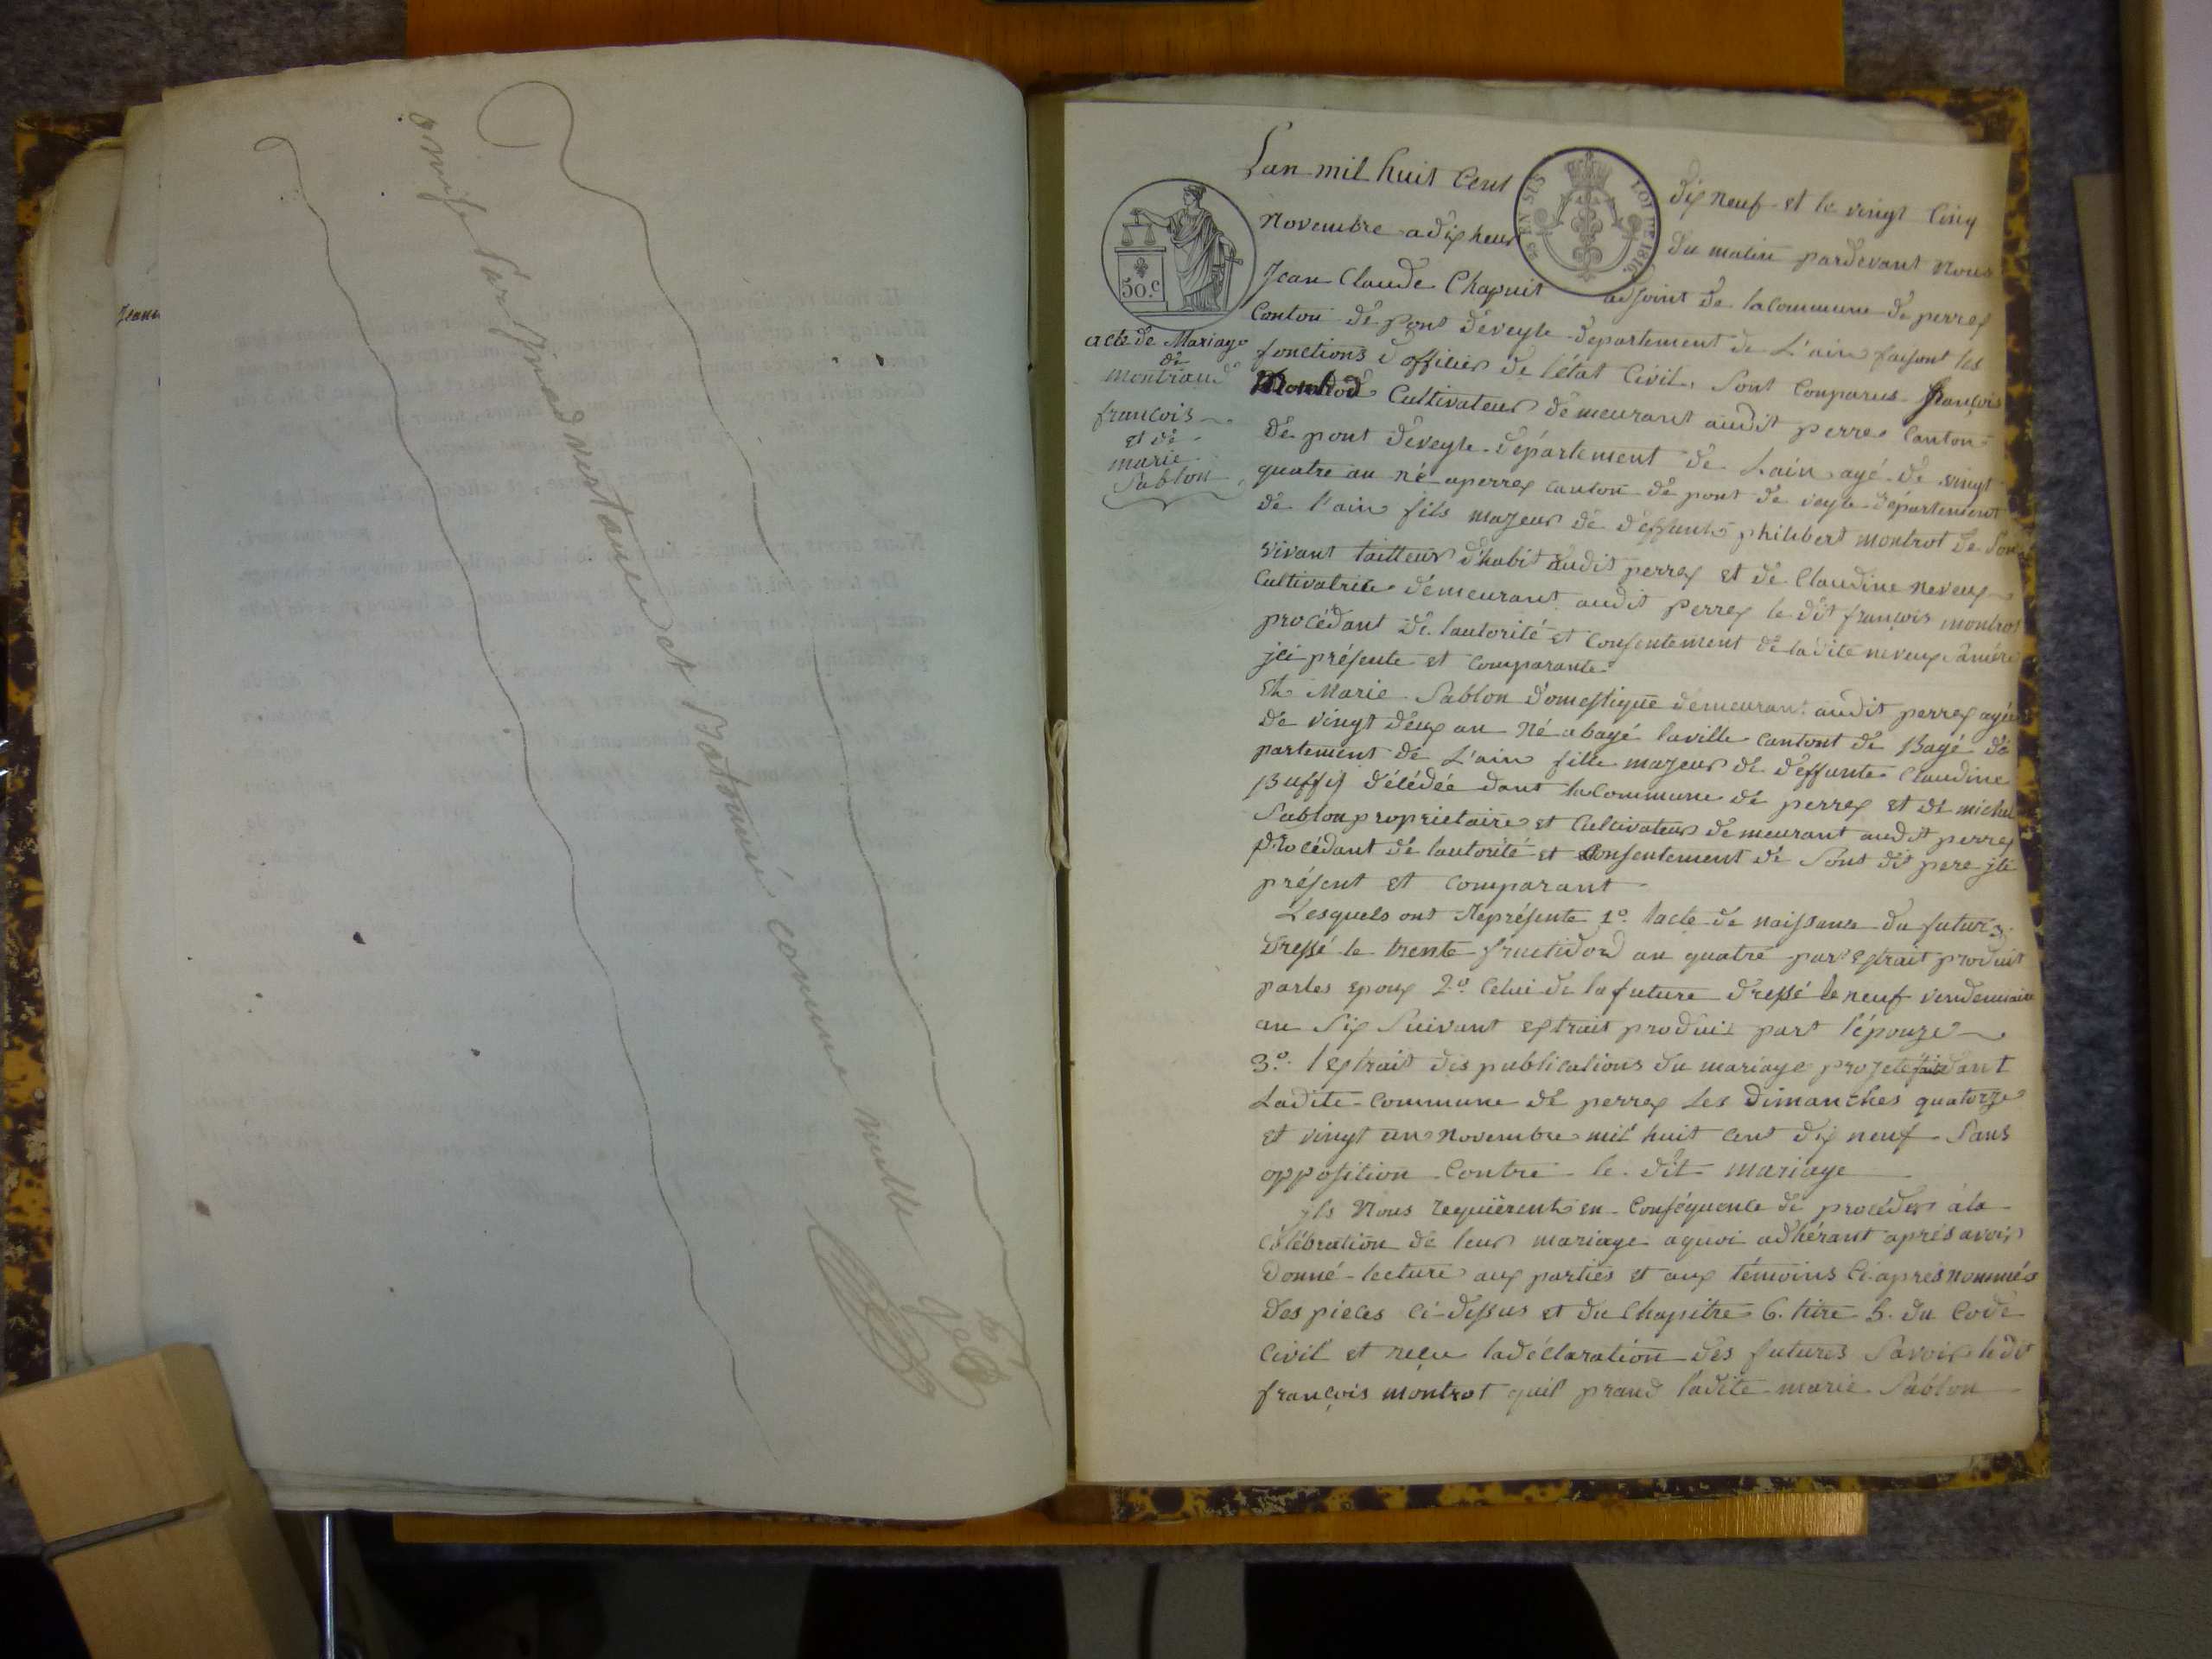 omise par inadvertance et Batonné comme nulle
Jeann
Lan mil huit Cent dix neuf et le vingt Cinq
Novembre a dix heur du matin pardevant Nous
Jean Claude Chapuit adjoint de la Commune de perrex
Conton de Pont deveyle departement de L'ain faisont les
fonctions d'officier de l'état Civil, Sont Comparus françois
Montrod Cultivateur demeurant audit perrex Canton
de pont deveyle département de Lain, agé de vingt
quatre an né a perrex canton de pont de veyle département
de l'ain fils majeur de deffunt philibert montrot de Son
vivant tailleur d'habit audit perrex et de Claudine neveux
Cultivatrice demeurant audit Perrex le dit françois montrot
procédant de lautorité et Consentement de ladite neveux Samére
jci présente et Comparante
Et Marie Sablon domestique demeurant audit perrex agée
de vingt deux an Né abagé laville cantont de Bagé dé
partement de L'ain fille majeur de deffunte Claudine
Buffy décédée dant la Commune de perrex et de michel
Sablon proprietaire et Cultivateur demeurant audit perrex
procédant de lautorité et Consentement de Sont dit pere jci
présent et Comparant
Lesquels ont Représente 1º. lacte de naissance du futur
Dressé le trente fructidor an quatre par Extrait produit
parles Epoux 2.º Celui de la future dressé le neuf vendemiaire
an Six Suivant Extrait produit part l'épouze
3.º lextrait des publications du mariage projeté faite dant
Ladite Commune de perrex Les Dimanches quatorze
et vingt un novembre mil huit cent dix neuf Sans
opposition Contre le dit mariage
jls Nous requièrent en Conséquence de procéder à la
Célébration de leur mariage aquoi adhérant aprés avoir
Donné lecture aux parties et aux témoins Ci-aprés nommés
Des pieces Ci-dessus et du Chapitre 6. titre 5. du Code
Civil et reçu la déclaration des futures Savoir ledit
françois montrot quil prand ladite marie Sablon
acte de Mariage
de
montraud
françois
et de
marie
Sablon
50.c
EN SUS
LOI DE 1816.